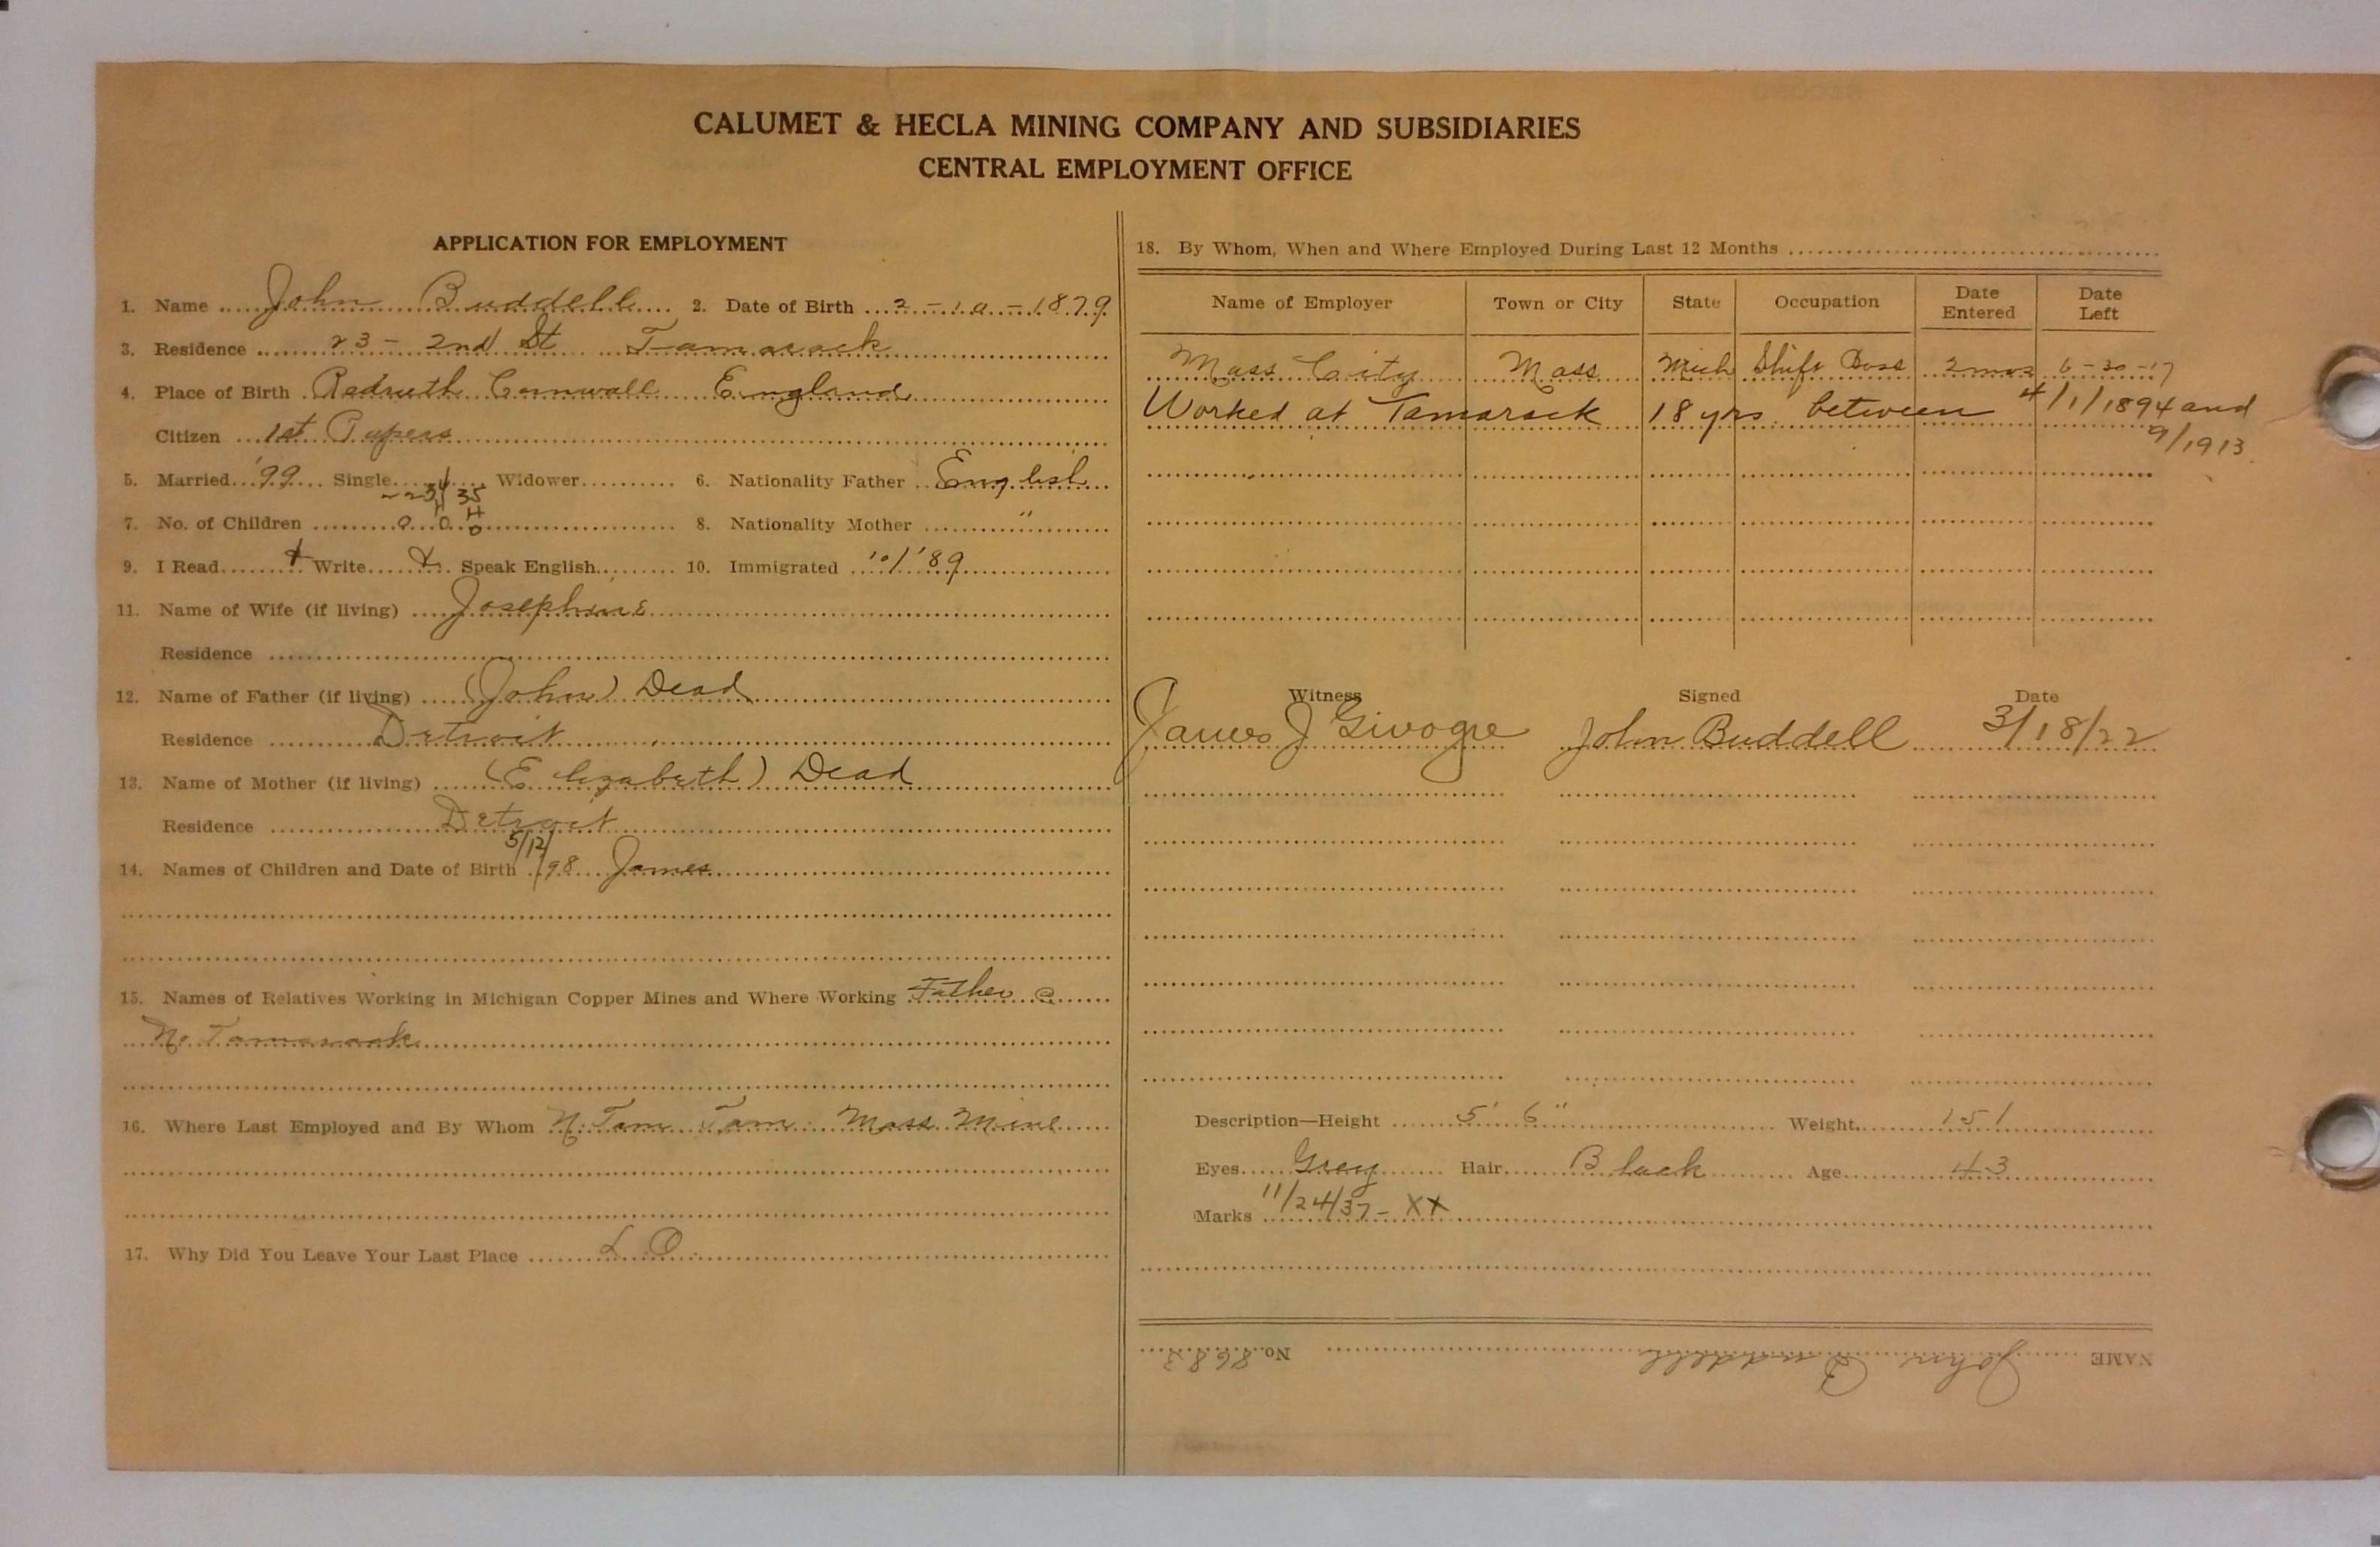 CALUMET & HECLA MINING COMPANY AND SUBSIDIARIES
CENTRAL EMPLOYMENT OFFICE
APPLICATION FOR EMPLOYMENT
1. Name John Buddell 2. Date of Birth 2-10-1879
3. Residence 23 - 2nd St Tamarack
4. Place of Birth Redruth Cornwall England
Citizen 1st Papers
5. Married '99 Single Widower 6. Nationality Father English
7. No. of Children 0 0 8. Nationality Mother "
9. I Read Write Speak English 10. Immigrated 10/'89
11. Name of Wife (if living) Josephine
Residence
12. Name of Father (if living) (John) Dead
Residence Detroit
13. Name of Mother (if living) (Elizabeth) Dead
Residence Detroit
14. Names of Children and Date of Birth 5/12/98 James
15. Names of Relatives Working in Michigan Copper Mines and Where Working Father @
No Tamarack
16. Where Last Employed and By Whom N. Tam Tam. Mass Mine
17. Why Did You Leave Your Last Place L O
18. By Whom, When and Where Employed During Last 12 Months
Name of Employer Town or City State Occupation Date Entered Date Left
Mass City Mass Mich Shift Boss 2 mos 6-30-17
Worked at Tamarack 18 yrs. between 4/1/1894 and
9/1913
Witness Signed Date
James J John Buddell 3/18/22
Description—Height 5' 6" Weight 151
Eyes Grey Hair Black Age 43
Marks 11/24/37 - XX
NAME John Buddell No. 8683